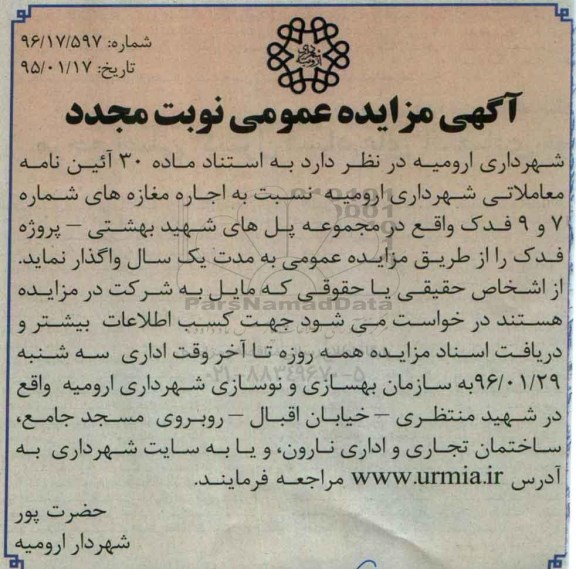 شماره: ۹۶/۱۷/۵۹۷
تاریخ: ۹۵/۰۱/۱۷
شهرداری ارومیه
آگهی مزایده عمومی نوبت مجدد
شهرداری ارومیه در نظر دارد به استناد ماده ۳۰ آئین نامه
معاملاتی شهرداری ارومیه نسبت به اجاره مغازه های شماره
۷ و ۹ فدک واقع در مجموعه پل های شهید بهشتی – پروژه
فدک را از طریق مزایده عمومی به مدت یک سال واگذار نماید.
از اشخاص حقیقی یا حقوقی که مایل به شرکت در مزایده
هستند در خواست می شود جهت کسب اطلاعات بیشتر و
دریافت اسناد مزایده همه روزه تا آخر وقت اداری سه شنبه
۹۶/۰۱/۲۹به سازمان بهسازی و نوسازی شهرداری ارومیه واقع
در شهید منتظری – خیابان اقبال – روبروی مسجد جامع،
ساختمان تجاری و اداری نارون، و یا به سایت شهرداری به
آدرس www.urmia.ir مراجعه فرمایند.
حضرت پور
شهردار ارومیه
ParsNamadData
۰۲۱-۸۸۳۴۹۶۷۰-۵